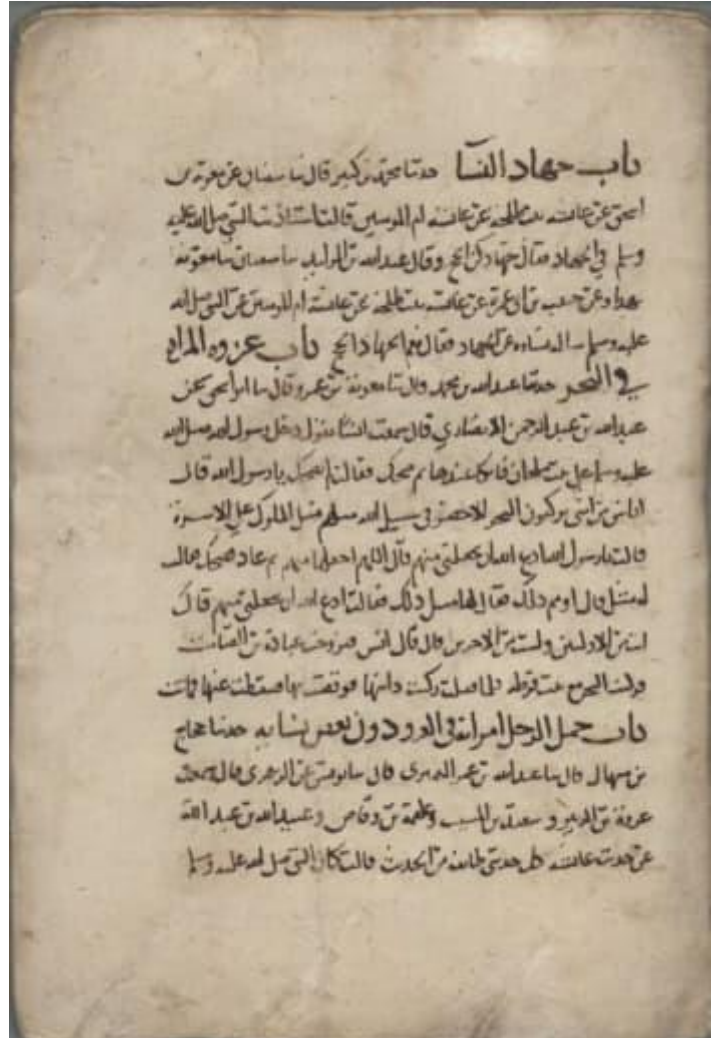 باب جهاد النسا حدثنا محمد بن كثير قال نا سفيان عن معوية بن
اسحق عن عائشه بنت طلحة عن عائشه ام المومنين قالت استاذنت النبي صلى الله عليه
وسلم في الجهاد فقال جهادكن الحج وقال عبد الله بن الوليد نا سفيان نا معوية
بهذا وعن حبيب بن ابي عمرة عن عائشه بنت طلحة عن عائشة ام المومنين عن النبي صلى الله
عليه وسلم ساله نساوه عن الجهاد فقال نعم الجهاد الحج باب غزوة المراة
في البحر حدثنا عبد الله بن محمد قال نا معوية بن عمرو قال نا ابو اسحق عن
عبد الله بن عبد الرحمن الانصاري قال سمعت انسا يقول دخل رسول الله صلى الله
عليه وسلم على بنت ملحان فاتكا عندها ثم ضحك فقالت لم تضحك يا رسول الله قال
اناس من امتي يركبون البحر الاخضر في سبيل الله مثلهم مثل الملوك على الاسرة
قالت يا رسول الله ادع الله ان يجعلني منهم قال اللهم اجعلها منهم ثم عاد فضحك فقالت
له مثل قال او مم ذلك فقال لها مثل ذلك فقالت ادع الله ان يجعلني منهم قال
انت من الاولين ولست من الاخرين قال قال انس فتزوجت عبادة بن الصامت
فركبت البحر مع بنت قرظة فلما قفلت ركبت دابتها فوقصت بها فسقطت عنها فماتت
باب حمل الرجل امراته في الغزو دون بعض نسايه حدثنا حجاج
بن منهال قال نا عبد الله بن عمر النميري قال نا يونس عن الزهري قال سمعت
عروة بن الزبير و سعيد بن المسيب وعلقمة بن وقاص وعبيد الله بن عبد الله
عن حديث عائشه كل حدثني طايفة من الحديث قالت كان النبي صلى الله عليه وسلم